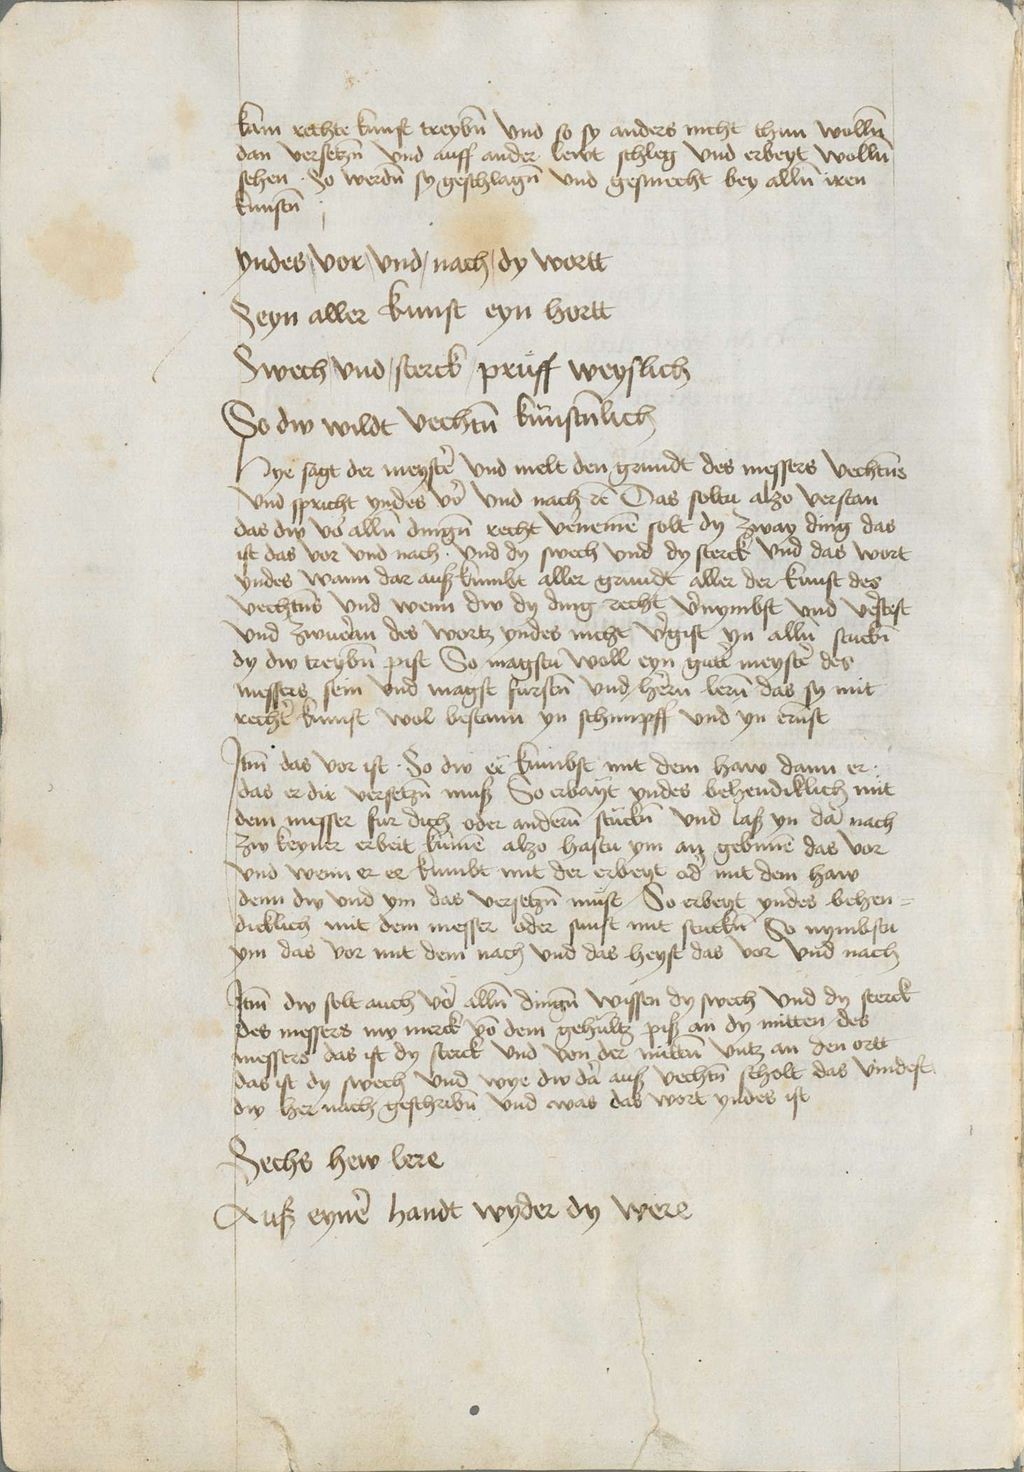 kain rechte kunst treybn̄ Vnd so sy anders nicht thun wolln̄
dan versetzn̄ Vnd auff ander lewt schleg Vnd erbeyt wolln̄
sehen · So werdn̄ sy geschlagn̄ Vnd geswecht bey alln̄ iren
kunstn̄
yndes / Vor / Vnd / nach / dy wortt
Seyn aller kunst eyn hortt
Swech / Vnd / sterck / prüff weyslich
So dw wildt Vechtn̄ künstn̄lich
Hye sagt der meyste᷑ Vnd melt den grundt des messers Vechtn̄s
Vnd spricht yndes vo᷑ Vnd nach ꝛc̄ Das soltu alzo verstan
das dw vo᷑ alln̄ dingn̄ recht ve᷑nemē solt dy zway ding das
ist das vor vnd nach · Vnd dy swech vnd dy sterck Vnd das wort
yndes wann dar auß kumbt aller grundt aller der kunst des
vechtn̄s Vnd wenn dw dy ding recht v᷑nymbst Vnd ve᷑stest
Vnd zwue᷑an des wortz yndes nicht v᷑gist yn alln̄ stuckn̄
dy dw treybn̄ pist So magstu woll eyn gutt᷑ meyste᷑ des
messers sein Vnd magst furstn̄ Vnd he᷑rn lern̄ das sy mit
recht᷑ kunst wol bestann yn schimpff Vnd yn ernst
Itm̄ das vor ist · So dw ee kumbst mit dem haw dann er ·
das er dir versetzn̄ muß So erbayt yndes behendiklich mit
dem messer fur dich oder andern̄ stuckn̄ Vnd laß yn da᷑ nach
zw keyner erbeit kumē alzo hastu ym an gebunē das vor
Vnd wenn er ee kumbt mit der erbeyt od᷑ mit dem haw
denn dw Vnd ym das versetzn̄ must So erbeyt yndes behen=
dicklich mit dem messer oder sunst mit stuckn̄ So nymbstu
ym das vor mit dem nach Vnd das heyst das vor Vnd nach
Itm̄ dw solt auch vo᷑ alln̄ dingn̄ wissen dy swech Vnd dy sterck
des messers nv merck vō dem gehültz piß an dy mitten des
messers das ist dy sterck Vnd von der mittn̄ vntz an den ortt
das ist dy swech Vnd wye dw da᷑ auß vechtn̄ scholt das vindest
dw her nach geschribn̄ Vnd was das wort yndes ist
Sechs hew lere
Auß eyne᷑ handt wyder dy were